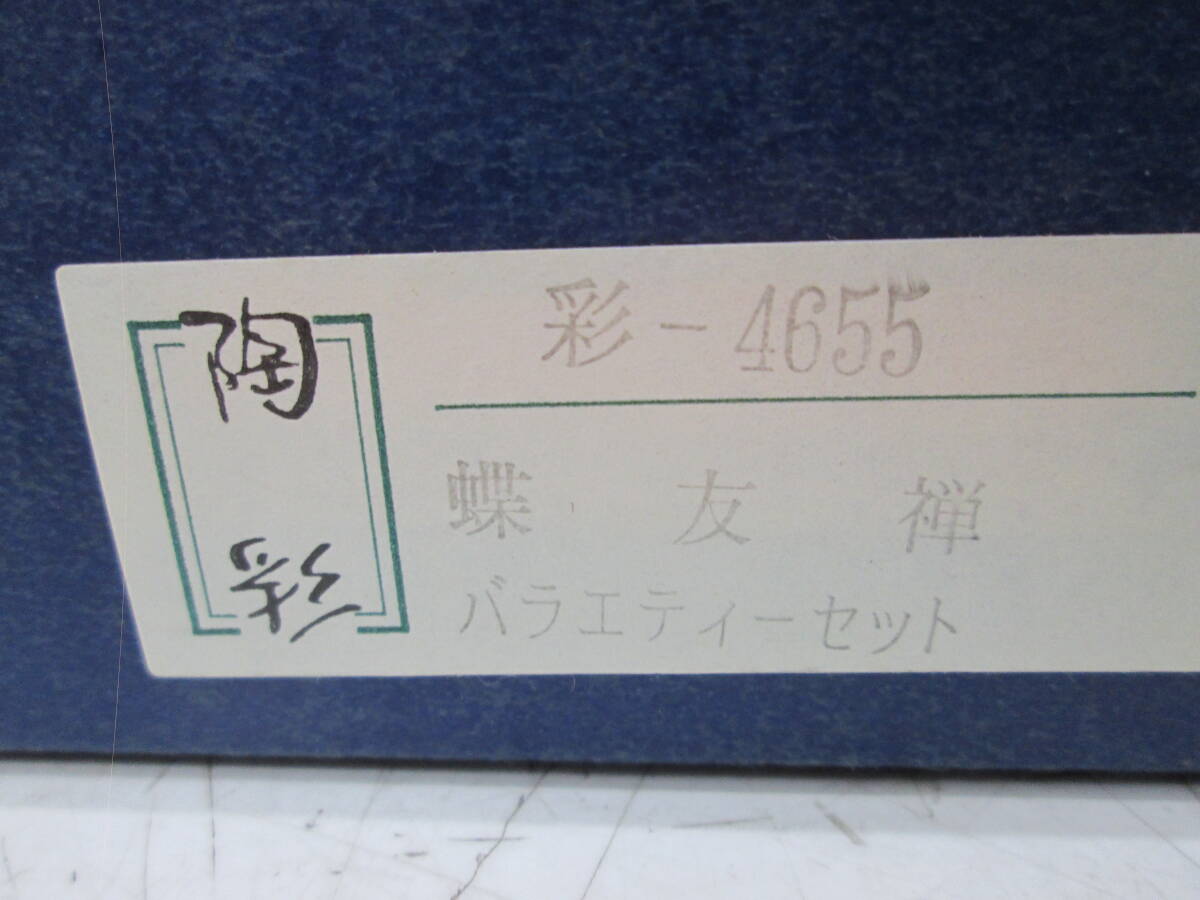 陶彩
彩-4655
蝶友禅
バラエティーセット